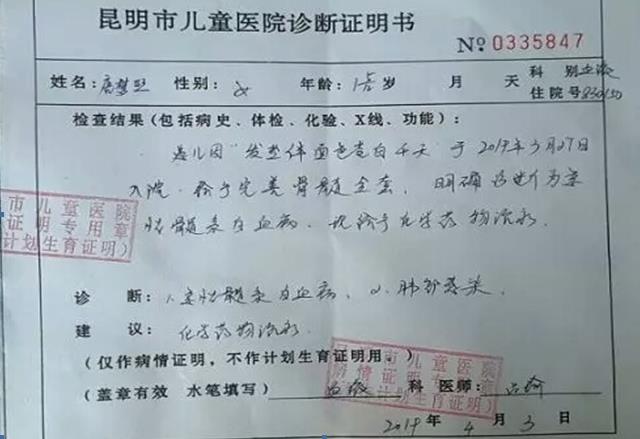 昆明市儿童医院诊断证明书
No 0335847
姓名: 性别: 女 年龄: 岁 月 天 科别 血液
住院号
检查结果(包括病史、体检、化验、X线、功能):
患儿因"发热伴面色苍白 天"于2019年3月27日
入院. 给予完善骨髓全套, 明确诊断为急
性髓系白血病. 现给予化学药物治疗.
诊断: 1.急性髓系白血病, 2.肺部感染.
建议: 化学药物治疗.
(仅作病情证明,不作计划生育证明用。)
(盖章有效 水笔填写) 血液 科 医师:
2019年4月3日
市儿童医院
证明专用章
计划生育证明)
昆明市儿童医院
病情证明专用章
计划生育证明)